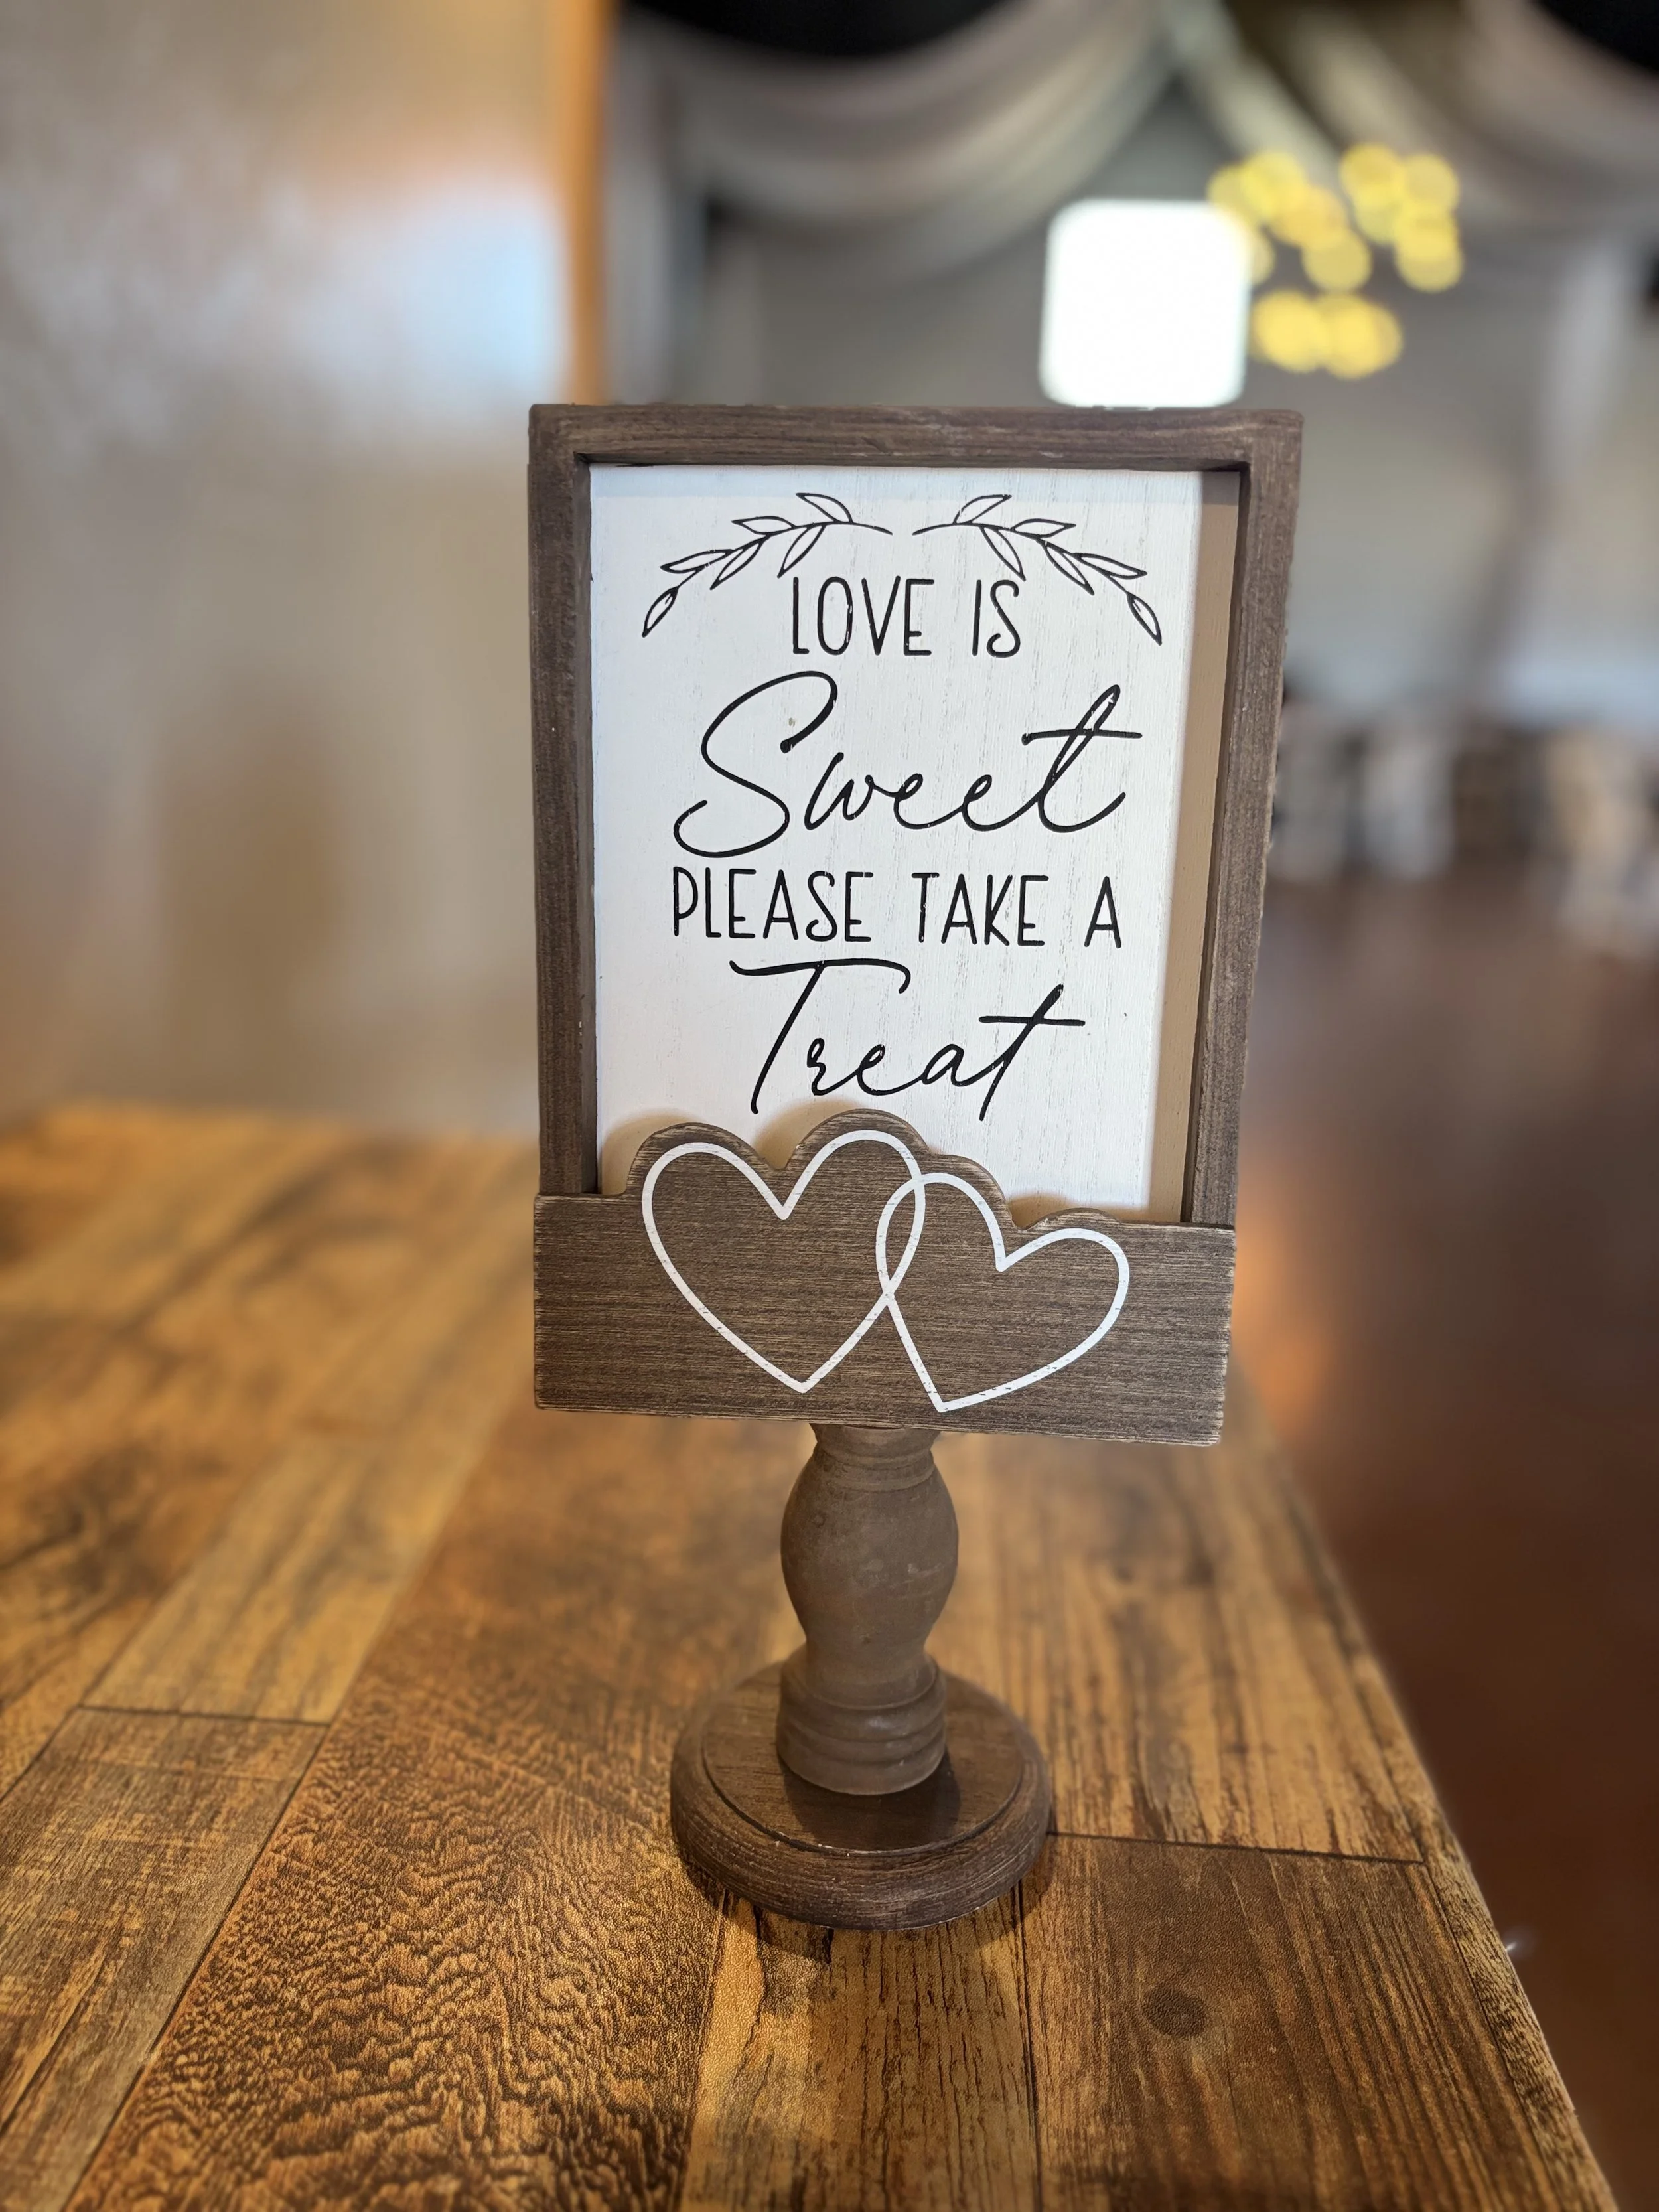 LOVE IS
Sweet
PLEASE TAKE A
Treat